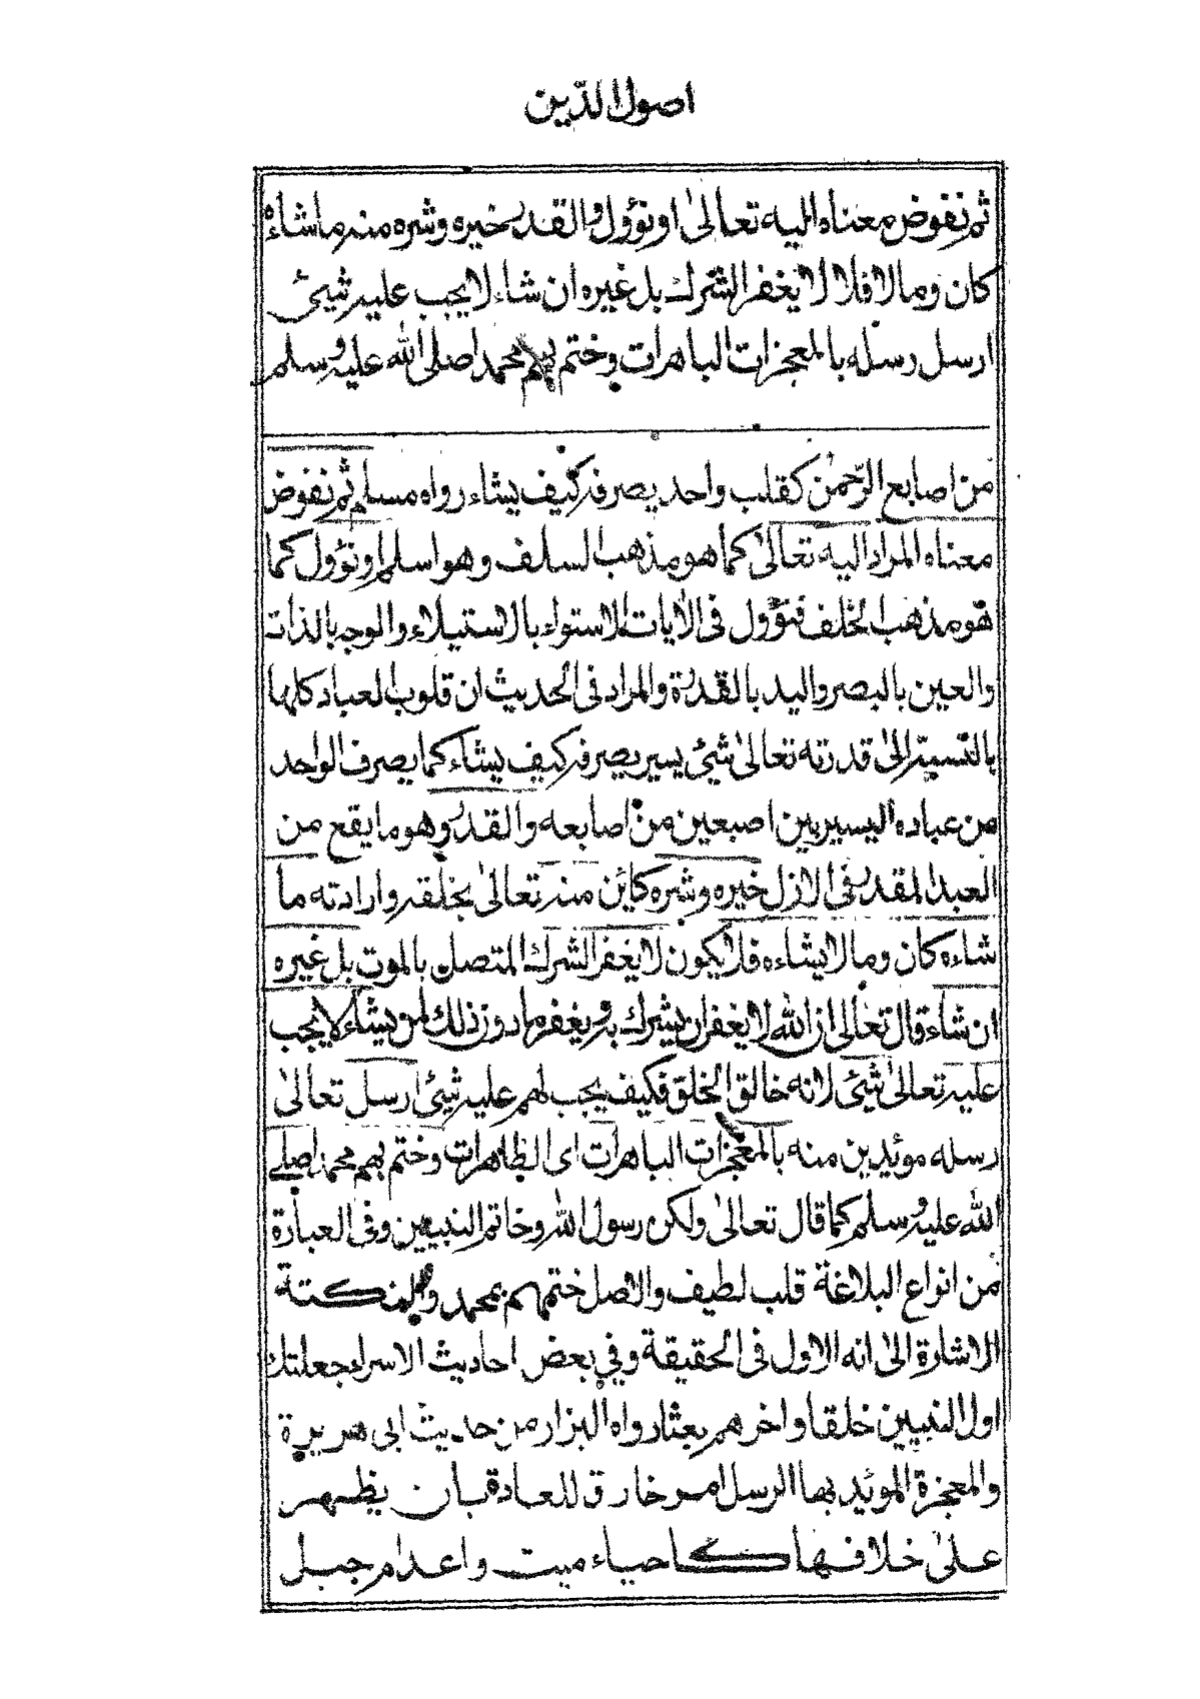 اصول الدّين
ثم نفوض معناه اليه تعالىٰ او نؤول والقدر خيره وشره منه ماشاء
كان ومالا فلا لا يغفر الشرك بل غيره ان شاء لا يجب عليه شيئ
ارسل رسله بالمعجزات الباهرات وختم بهم محمدا صلى الله عليه وسلم
من اصابع الرّحمٰن كقلب واحد يصرفه كيف يشاء رواه مسلم ثم نفوض
معناه المراد اليه تعالىٰ كما هو مذهب السلف وهو اسلم او نؤول كما
هو مذهب الخلف فنؤول فى الايات الاستواء بالاستيلاء والوجه بالذات
والعين بالبصر واليد بالقدرة والمراد فى الحديث ان قلوب العباد كلها
بالنسبة الىٰ قدرته تعالىٰ شيئ يسير يصرفه كيف يشاء كما يصرف الواحد
من عباده اليسير بين اصبعين من اصابعه والقدر وهو ما يقع من
العبد المقدر فى الازل خيره وشره كائن منه تعالىٰ بخلقه وارادته ما
شاءه كان وما لا يشاءه فلا يكون لا يغفر الشرك المتصل بالموت بل غيره
ان شاء قال تعالى ان الله لا يغفر ان يشرك به ويغفر ما دون ذلك لمن يشاء لا يجب
عليه تعالىٰ شيئ لانه خالق الخلق فكيف يجب لهم عليه شيئ ارسل تعالىٰ
رسله مؤيدين منه بالمعجزات الباهرات اى الظاهرات وختم بهم محمدا صلى
الله عليه وسلم كما قال تعالىٰ ولكن رسول الله وخاتم النبيين وفى العبارة
من انواع البلاغة قلب لطيف والاصل ختمهم بمحمد والنكتة
الاشارة الىٰ انه الاول فى الحقيقة وفي بعض احاديث الاسراء جعلتك
اول النبيين خلقا واخرهم بعثا رواه البزار من حديث ابى هريرة
والمعجزة المؤيد بها الرسل امر خارق للعادة بان يظهر
علىٰ خلافها كاحياء ميت واعدام جبل